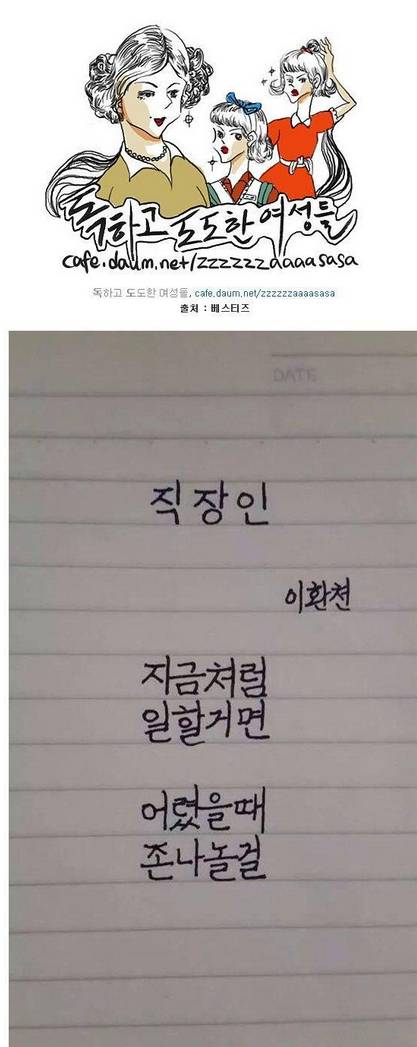 독하고 도도한 여성들
cafe.daum.net/zzzzzzaaaasasa
독하고 도도한 여성들, cafe.daum.net/zzzzzzaaaasasa
출처 : 베스티즈
DATE
직장인
이환천
지금처럼
일할거면
어렸을때
존나놀걸